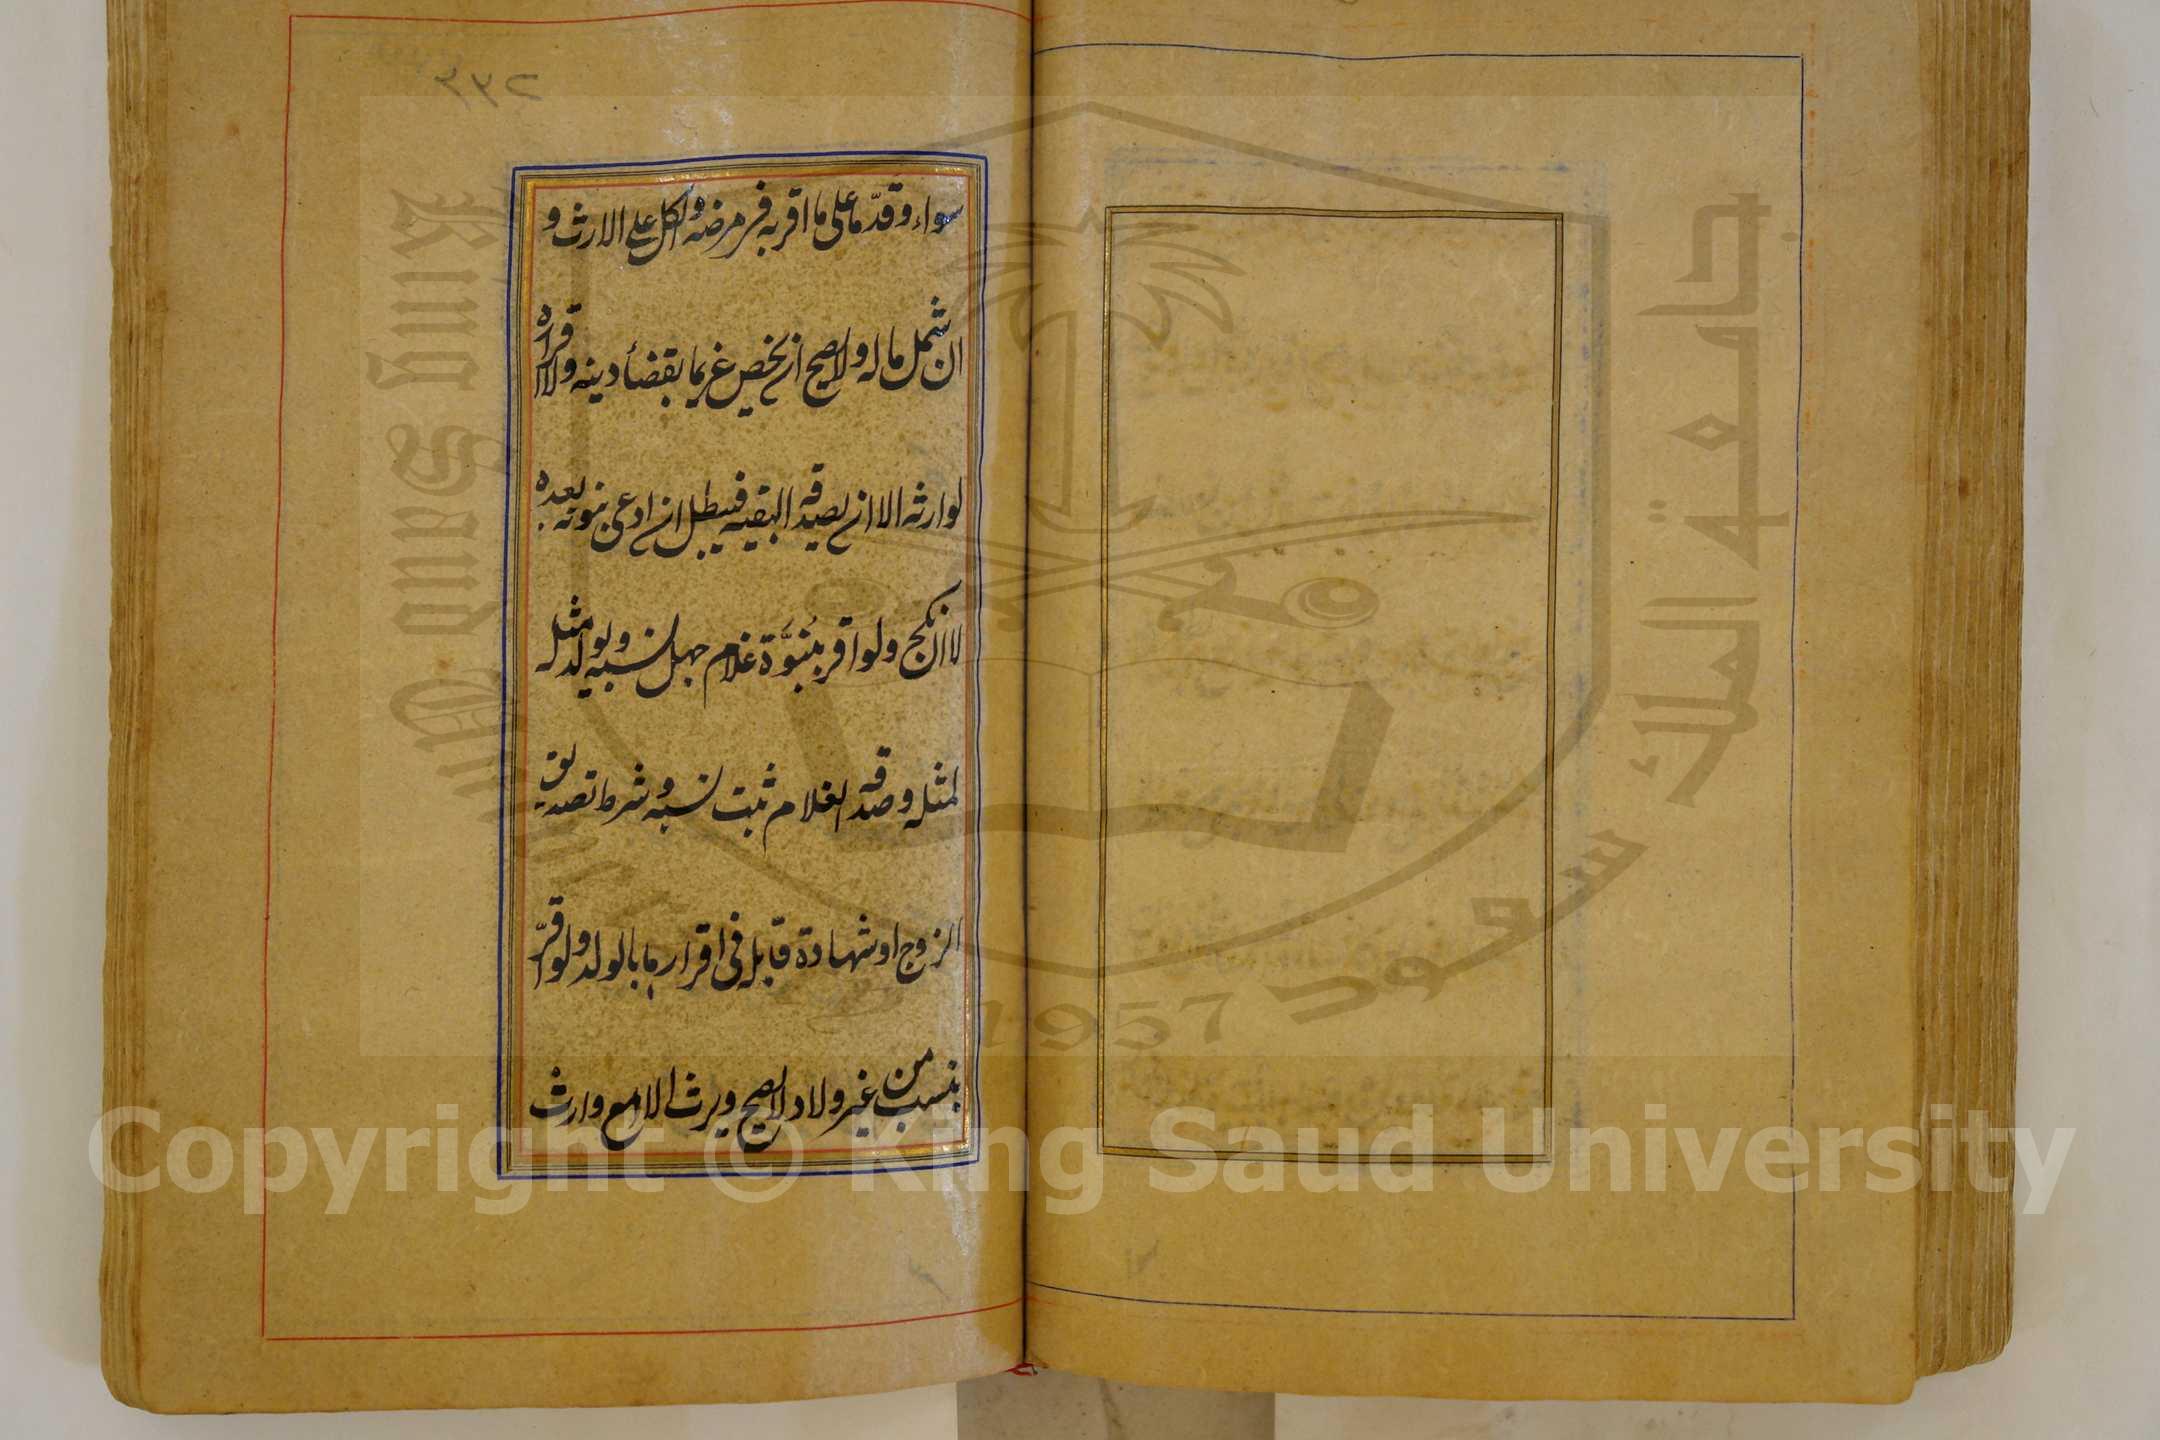 ٢٧٢
سواء وقدّما على ما اقر به في مرضه والكل على الارث و
ان شمل ماله ولا يصح ان يخص غريما بقضأ دينه ولا اقراره
لوارثه الا ان يصدقه البقيه فيبطل ان ادعى بنوته بعده
لا ان نكح ولو اقر ببُنوَّة غلام جهل نسبه ويولد مثله
لمثله وصدقه الغلام ثبت نسبه وشرط تصديق
الزوج او شهادة قابله فى اقرارها بالولد ولو اقرّ
بنسب من غير ولاد لا يصح ويرث الا مع وارث
King Saud University
جامعة الملك سعود
1957
Copyright © King Saud University